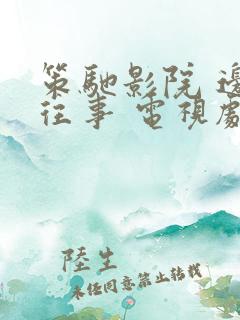 策馳影院 邊
往事 電視劇
陸生
未经同意禁止转载